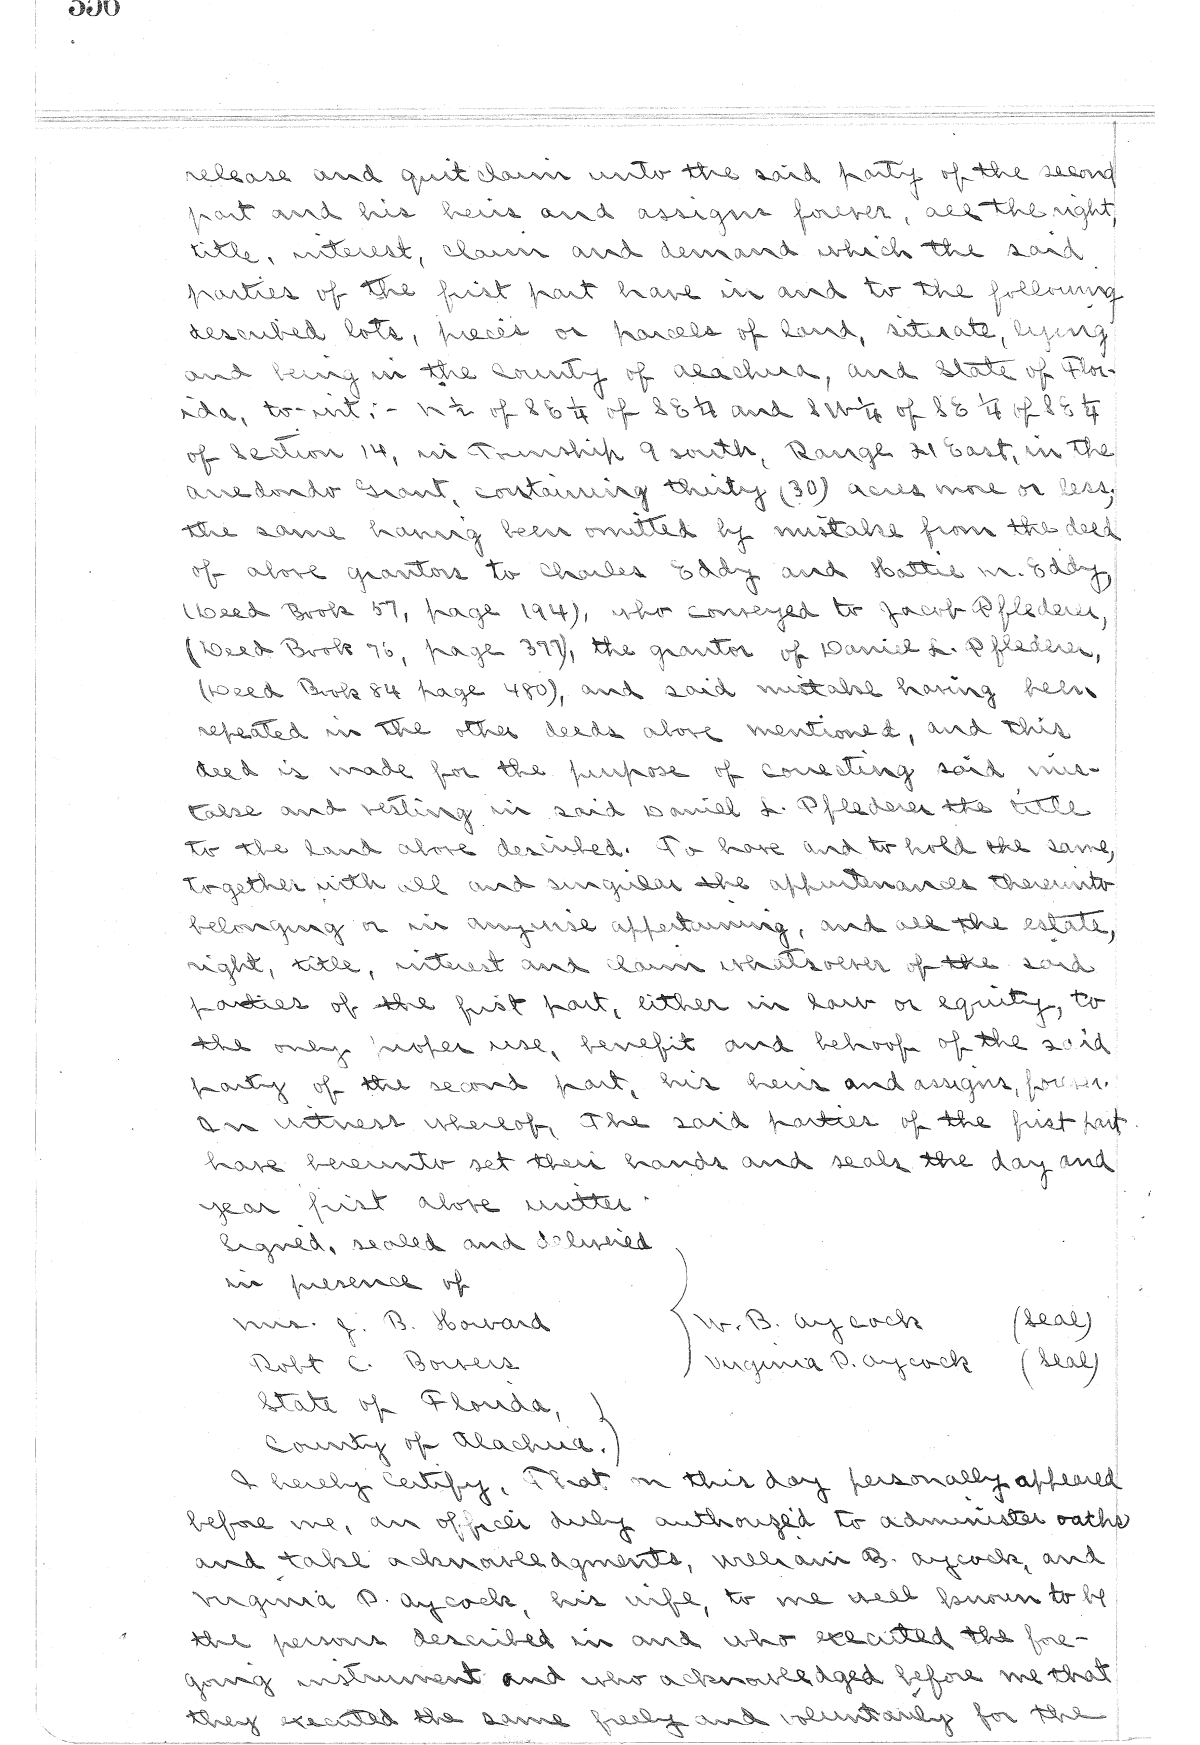 release and quit claim unto the said party of the second
part and his heirs and assigns forever, all the right,
title, interest, claim and demand which the said
parties of the first part have in and to the following
described lots, pieces or parcels of land, situate, lying
and being in the County of Alachua, and State of Flor-
ida, to-wit:- N½ of SE¼ of SE¼ and SW¼ of SE¼ of SE¼
of Section 14, in Township 9 south, Range 21 East, in the
Arredondo Grant, containing thirty (30) acres more or less,
the same having been omitted by mistake from the deed
of above grantors to Charles Eddy and Hattie M. Eddy,
(Deed Book 57, page 194), who conveyed to Jacob Pflederer,
(Deed Book page the grantor of Daniel L. Pflederer,
(Deed Book 84 page 480), and said mistake having been
repeated in the other deeds above mentioned, and this
deed is made for the purpose of correcting said mis-
take and vesting in said Daniel L. Pflederer the title
to the land above described. To have and to hold the same,
together with all and singular the appurtenances thereunto
belonging or in anywise appertaining, and all the estate,
right, title, interest and claim whatsoever of the said
parties of the first part, either in law or equity, to
the only proper use, benefit and behoof of the said
party of the second part, his heirs and assigns, forever.
In witness whereof, The said parties of the first part
have hereunto set their hands and seals the day and
year first above written.
Signed, sealed and delivered
in presence of
Mrs. J. B. Howard W. B. Aycock (Seal)
Robt C. Bowers Virginia P. Aycock (Seal)
State of Florida,
County of Alachua.
I hereby Certify, That on this day personally appeared
before me, an officer duly authorized to administer oaths
and take acknowledgments, William B. Aycock, and
Virginia P. Aycock, his wife, to me well known to be
the persons described in and who executed the fore-
going instrument and who acknowledged before me that
they executed the same freely and voluntarily for the